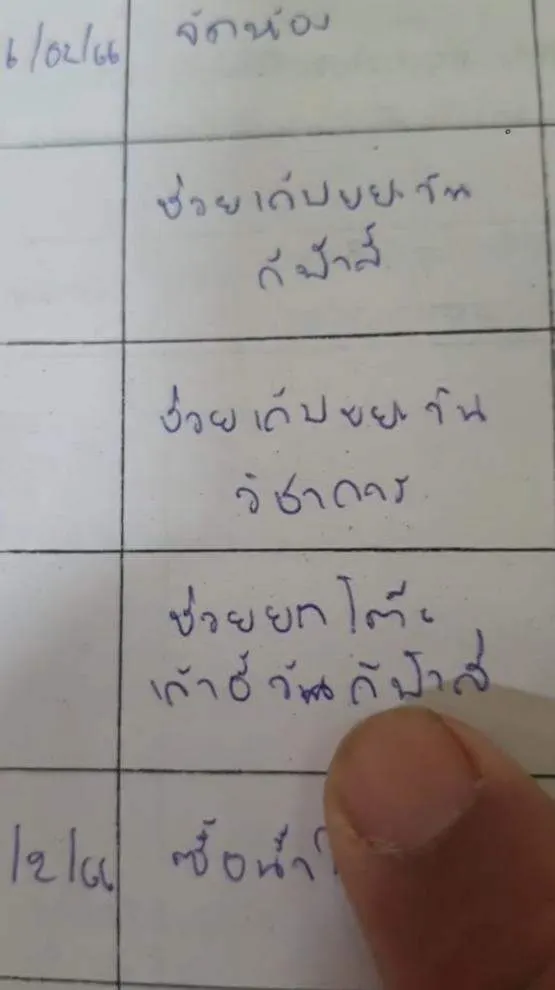 6/02/66 จัดห้อง
ช่วยเก็บขยะ วัน
กีฬาสี
ช่วยเก็บขยะ วัน
วิชาการ
ช่วยยก โต๊ะ
เก้าอี้ วันกีฬาสี
/2/66 ซื้อน้ำ